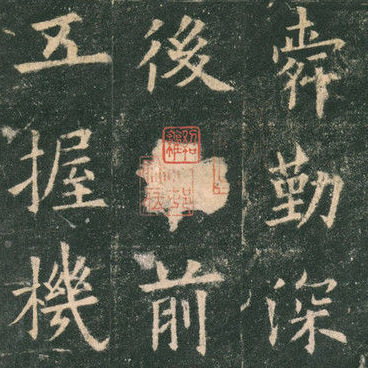 舜勤深
後前
五握機